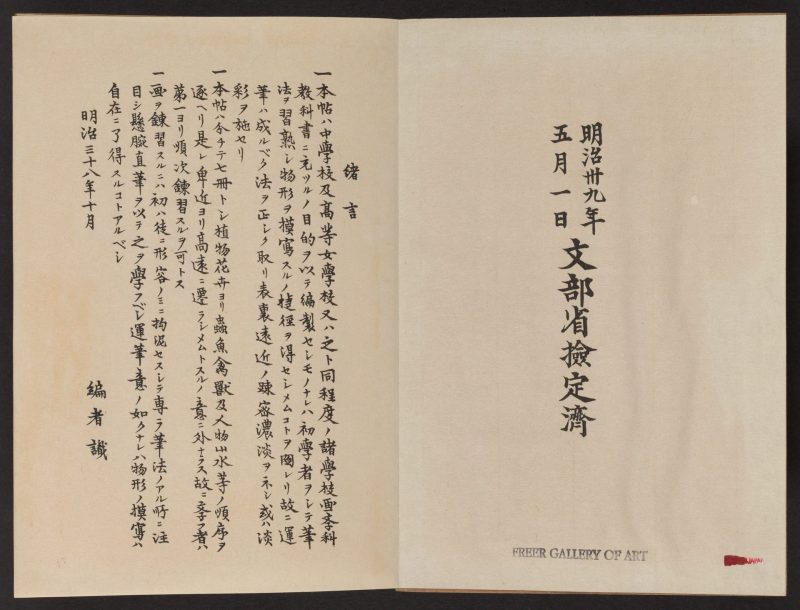 明治卅九年
五月一日
文部省檢定濟
FREER GALLERY OF ART
緒言
一本帖ハ中學校及高等女學校又ハ之ト同程度ノ諸學校画斈科
教科書ニ充ツルノ目的ヲ以テ編製セシモノナレハ初學者ヲシテ筆
法ヲ習熟シ物形ヲ摸寫スルノ捷徑ヲ得セシメムコトヲ圖レリ故ニ運
筆ハ成ルベク法ヲ正シク取リ表裏遠近ノ疎密濃淡ヲ示シ或ハ淡
彩ヲ施セリ
一本帖ハ分チテ七冊トシ植物花卉ヨリ蟲魚禽獸及人物山水等ノ順序ヲ
逐ヘリ是レ卑近ヨリ高遠ニ遷ラシメムトスルノ意ニ外ナラス故ニ斈フ者ハ
第一ヨリ順次鍊習スルヲ可トス
一画ヲ鍊習スルニハ初ハ徒ニ形容ノミニ拘泥セスシテ専ラ筆法ノアル所ニ注
目シ懸腕直筆ヲ以テ之ヲ學フベシ運筆意ノ如クナレハ物形ノ摸寫ハ
自在ニ了得スルコトアルベシ
明治三十八年十月
編者識